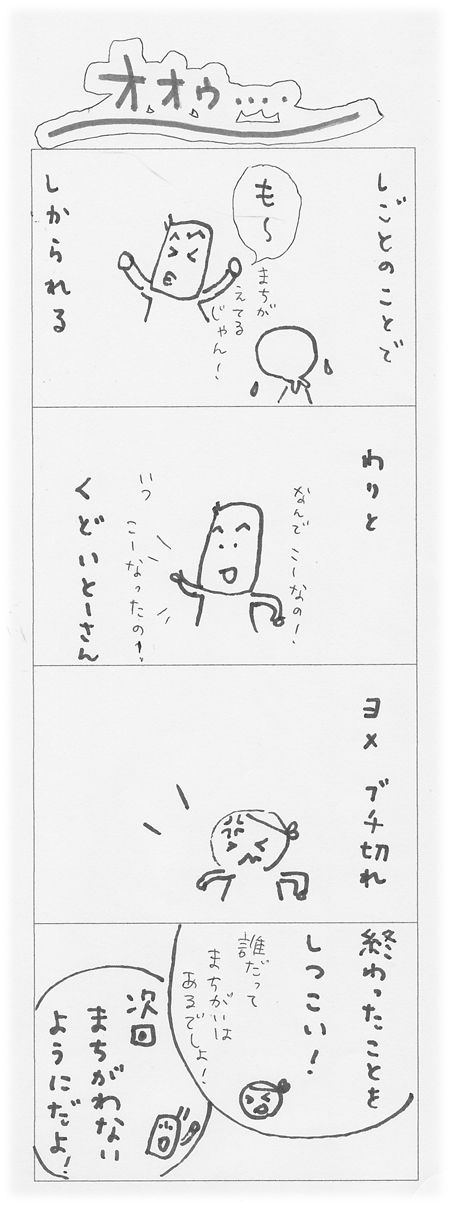 オオゥ....
しごとのことで
も〜
まちが
えてる
じゃん!
しかられる
わりと
なんで こーなの!
いつ
こーなったの!
くどいとーさん
ヨメ ブチ切れ
終わったことを
しつこい!
誰だって
まちがいは
あるでしょ!
次回
まちがわない
ようにだよ!